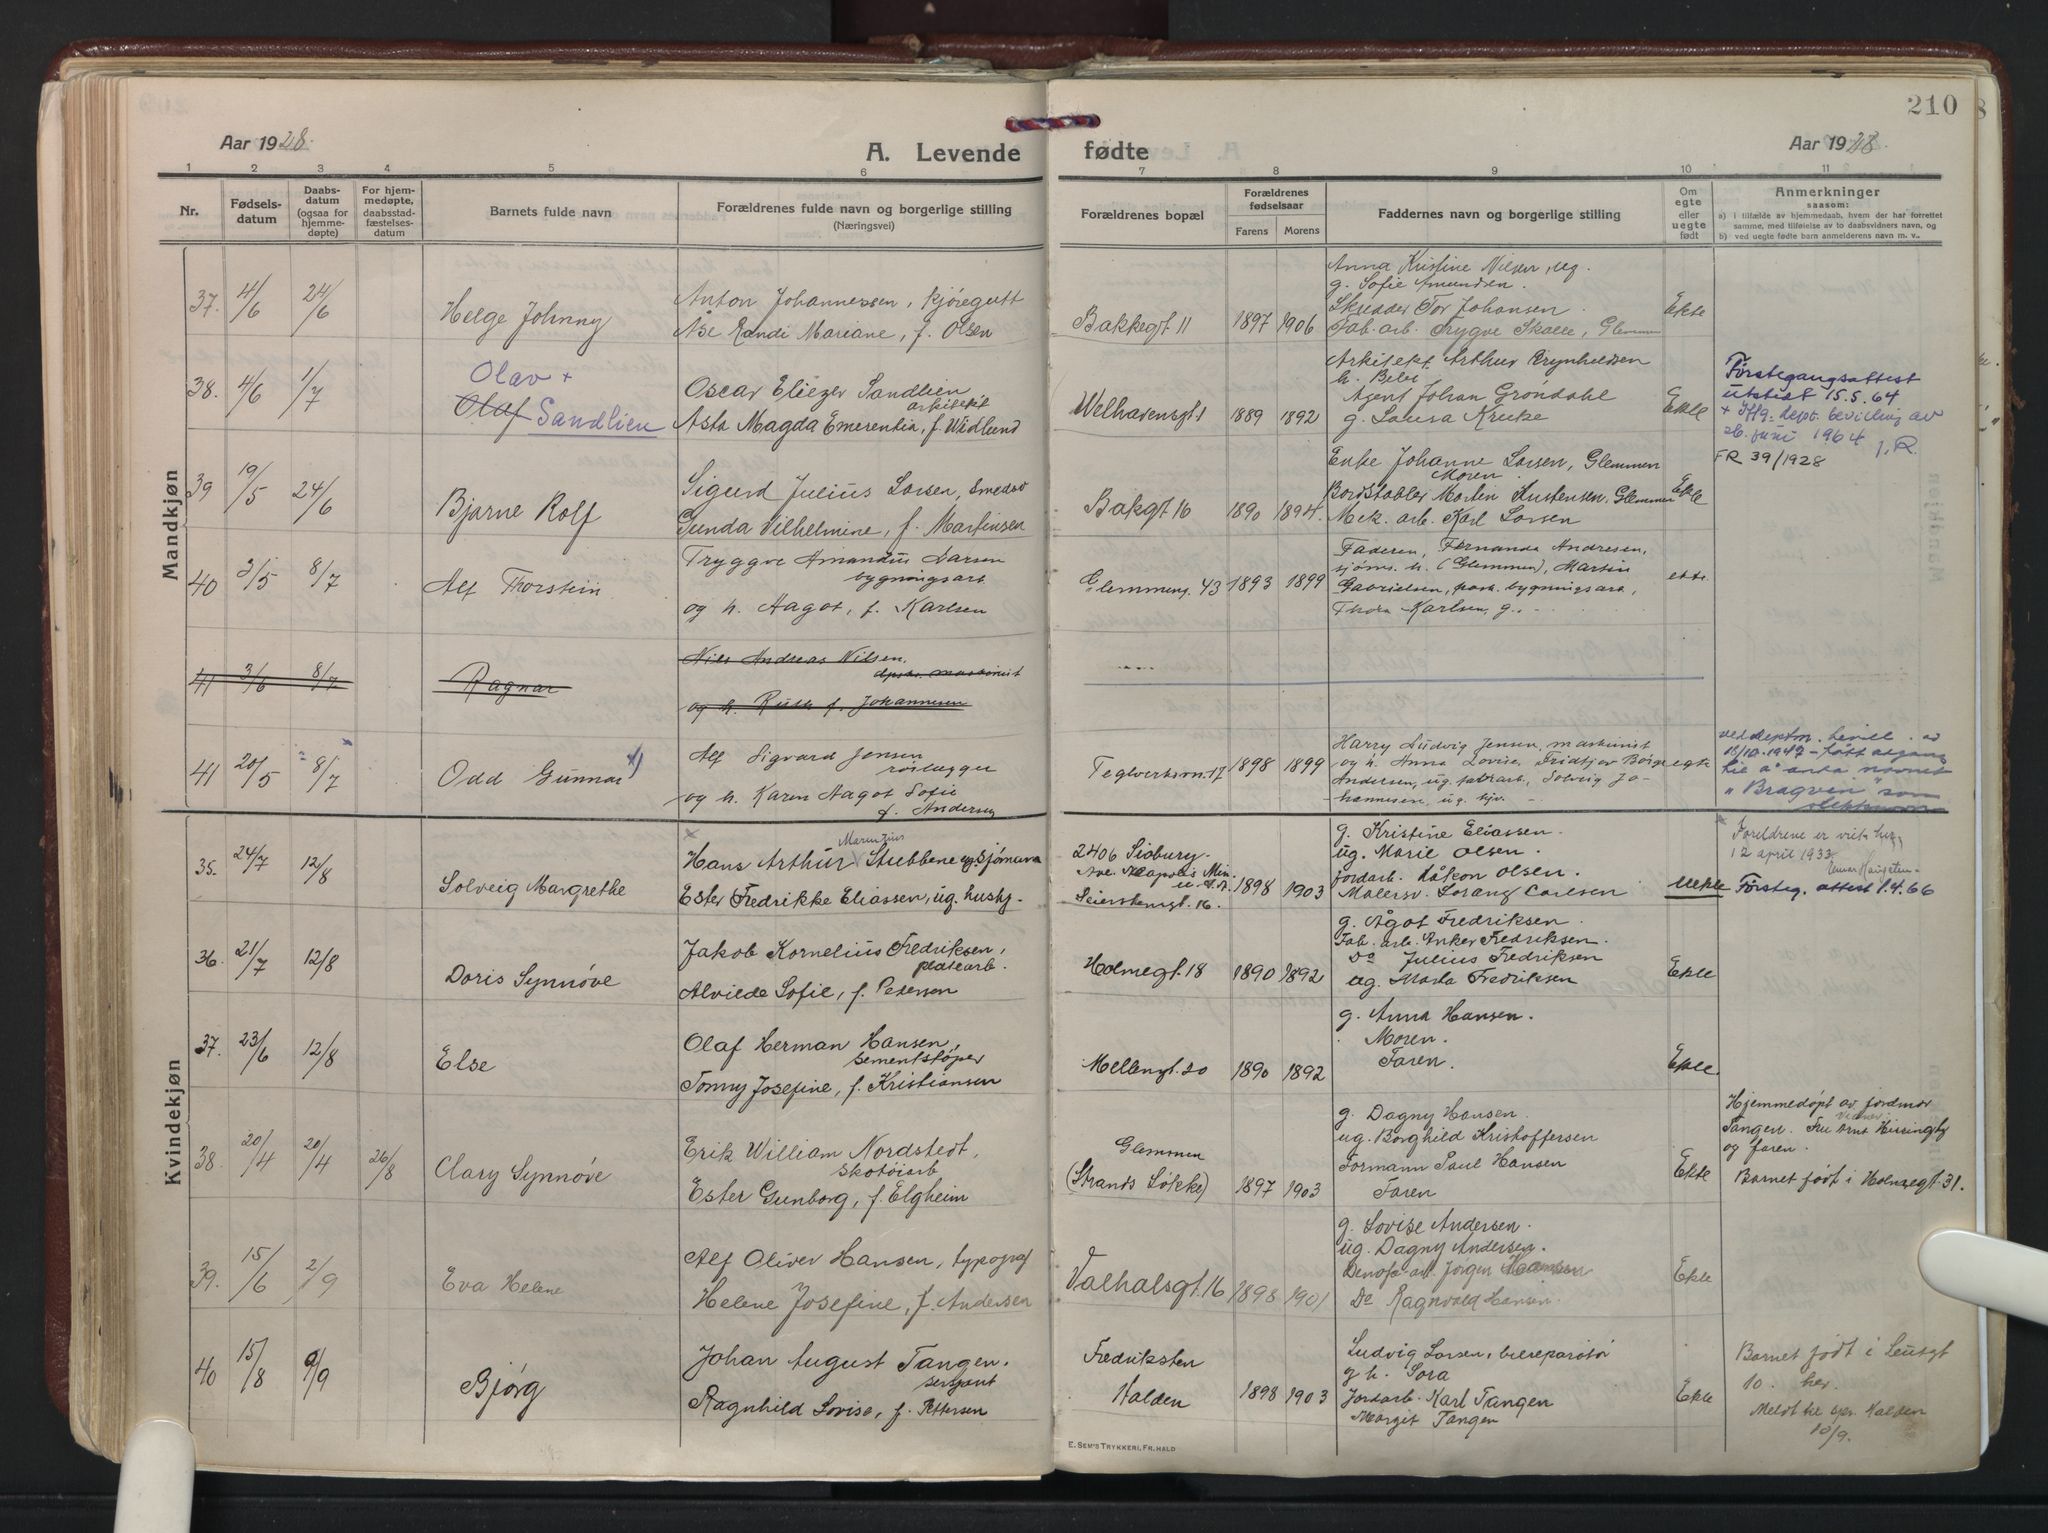 210
Aar 1928.
A. Levende
fødte
Aar 1928
1 2 3 4 5 6 7 8 9 10 11
Nr.
Fødsels-
datum
Daabs-
datum
(ogsaa for
hjemme-
døpte)
For hjem-
medøpte,
daabsstad-
fæstelses-
datum
Barnets fulde navn
Forældrenes fulde navn og borgerlige stilling
(Næringsvei)
Forældrenes bopæl
Forældrenes
fødselsaar
Farens
Morens
Faddernes navn og borgerlige stilling
Om
egte
eller
uegte
født
Anmerkninger
saasom:
a) i tilfælde av hjemmedaab, hvem der har forrettet
samme, med tilføielse av to daabsvidners navn, og
b) ved uegte fødte barn anmelderens navn m. v.
Mandkjøn
37. 4/6 24/6
Helge Johnny
Anton Johannessen, kjøregutt
Åse Randi Mariane, f. Olsen
Bakkegt 11
1897 1906
Anna Kristine Nilsen, ug.
g. Sofie Amundsen.
Skrædder Tor Johansen.
Fab. arb. Trygve Skolle, Glemmen
Ekte
38. 4/6 1/7
Olav +
Olaf Sandlien
Oscar Eliezer Sandlien
arkitekt
Asta Magda Emerentia, f. Widlund
Welhavensgt. 1
1889 1892
Arkitekt Arthur Brynhildsen
h. Bebe
Agent Johan Grøndahl
g. Lousa Kruke
Ekte
Førstegangsattest
utstedt 15.5.64
+ Iflg. dept. bevilling av
26. juni 1964 J.R.
FR 39/1928
39 19/5 24/6
Bjarne Rolf
Sigurd Julius Larsen, smedsv
Gunda Vilhelmine, f. Martinsen
Bakgt 16
1890 1894.
Enke Johanne Larsen, Glemmen
Moren.
Bordstabler Martin Kustensen, Glemmen
Mek. arb. Karl Larsen
Ekte
40 3/5 8/7
Alf Thorstein
Tryggve Amandus Larsen
bygningsarb
og h. Aagot, f. Karlsen
Glemmeng. 43
1893 1899
Faderen, Fernanda Andresen,
sjøms. h. (Glemmen), Martin
Gabrielsen, bygningsarb,
Thora Karlsen, g.
ekte
41 3/6 8/7
Ragnar
Nils Andreas Nilsen,
maskinist
og h. Ruth f. Johannesen
41 20/5 8/7
Odd Gunnar x)
Alf Sigvard Jensen
rørlegger
og h. Karen Aagot Sofie
f. Andersen
Teglverksvn. 17
1898 1899
Harry Ludvig Jensen, maskinist
og h. Anna Lovise, Fridtjov Børge
Andersen, ug. fabrarb, Solveig Jo-
hannesen, ug. hjv.
egte
ved deptm. bevill. av
18/10.1947 - fått adgang
til å anta navnet
„Bragvin" som
slektsnavn
Kvindekjøn
35. 24/7 12/8
Solveig Margrethe
Marentius
Hans Arthur Stubbene ug. Sjømann
Ester Fredrikke Eliassen, ug. husbg.
2406 Sidbury
Ave. Min.
U.S.A.
Seierstensgt. 16.
1898 1903
g. Kristine Eliassen.
ug. Marie Olsen.
Jordarb. Håkon Olsen.
Malersv. Lorang Carlsen
Uekte
Foreldrene er viet her,
12 april 1933
Førsteg. attest 1.4.66
36. 21/7 12/8
Doris Synnøve
Jakob Kornelius Fredriksen,
platearb.
Alvilde Sofie, f. Petersen
Holmegt. 18
1890 1892
g. Ågot Fredriksen.
Fab. arb. Anker Fredriksen.
Do Julius Fredriksen
ug. Marta Fredriksen
Ekte
37. 23/6 12/8
Else
Olaf Herman Hansen,
sementstøper
Tonny Josefine, f. Kristiansen
Mellemgt. 20
1890 1892
g. Anna Hansen.
Moren.
Faren.
Ekte.
38. 20/4 20/4 26/8
Clary Synnøve
Erik William Nordstedt,
skotøiarb
Ester Gunborg, f. Elgheim
Glemmen
(Strands Løkke)
1897 1903
g. Dagny Hansen.
ug. Borghild Kristoffersen
Formann Paul Hansen
Faren
Ekte
Hjemmedøpt av jordmor
Tangen. Vidner:
og faren.
Barnet født i Holmegt. 31.
39. 15/6 2/9
Eva Helene
Alf Oliver Hansen, typograf
Helene Josefine, f. Andersen
Valhalsgt. 16
1898 1901
g. Lovise Andersen.
ug. Dagny Andersen.
Jørgen Hansen
Do Ragnvald Hansen.
Ekte
40 15/8 9/9
Bjørg
Johan August Tangen.
sersjant
Ragnhild Lovise, f. Pettersen
Fredriksten
Halden
1898 1903
Ludvig Larsen, bilreparatør
g h. Sora
Jordarb. Karl Tangen
Margit Tangen
Ekte
Barnet født i
10. her.
Meldt til spr. Halden
10/9.
E. SEM'S TRYKKERI, FR.HALD